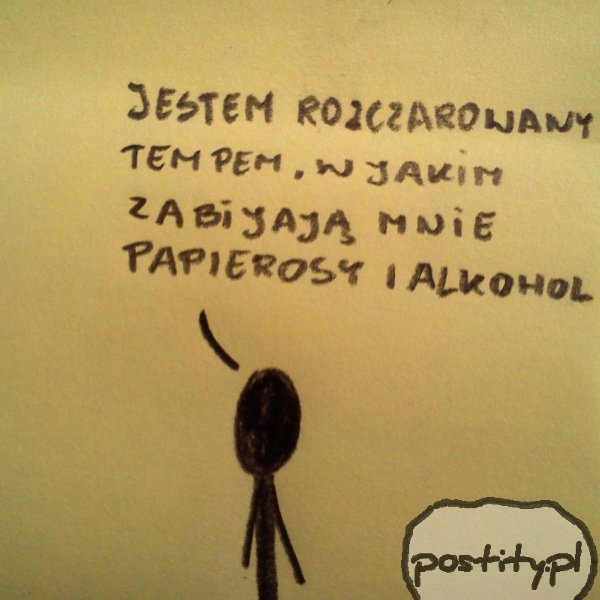 JESTEM ROZCZAROWANY
TEMPEM, W JAKIM
ZABIJAJĄ MNIE
PAPIEROSY I ALKOHOL
postity.pl